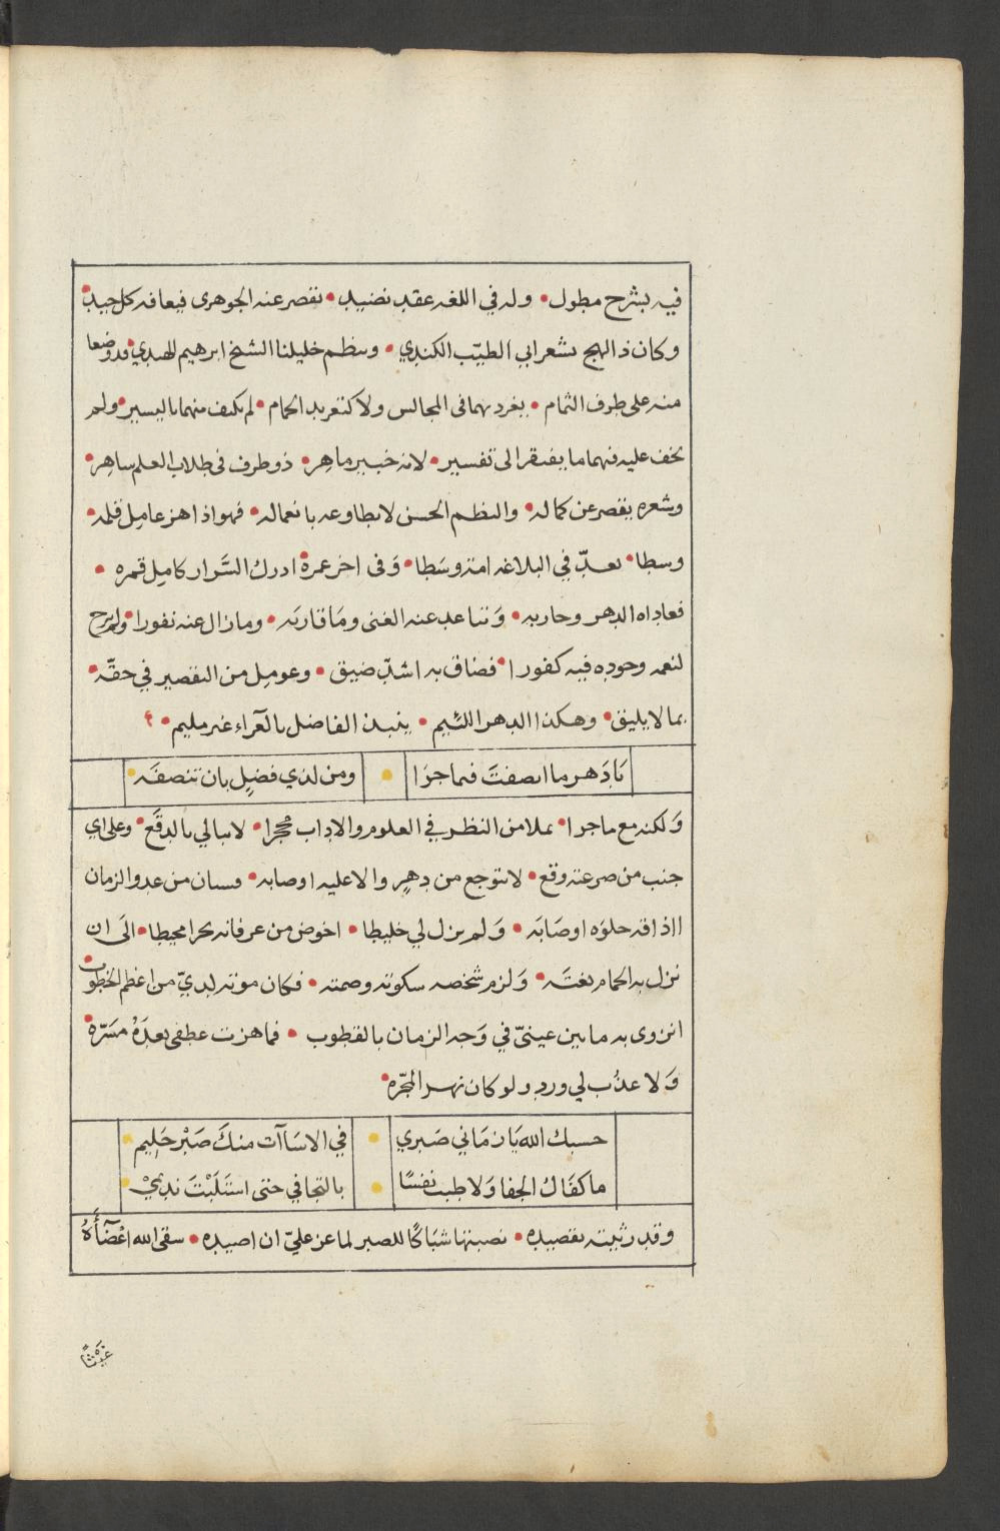 فيه بشرح مطول • وله في اللغه عقد نضيد • تقصر عنه الجوهرى فيعافه كل جيد •
وكان ذا لهج بشعر ابي الطيّب الكندي • وبنظم خليلنا الشيخ ابرهيم الهندي • قد وضعا
منه على طرف الثمام • يغرد بهما فى المجالس ولا كتغريد الحمام • لم يكتف منهما باليسير • ولم
تخف عليه فيهما ما يفتقر الى تفسير • لانه خبير ماهر • ذو طرف فى طلاب العلم ساهر •
وشعره يقصر عن كماله • والنظم الحسن لا يطاوعه بانعماله • فهو اذا هز عامل قلمه •
وسطا • يعدّ في البلاغه امة وسَطا • وَفى اخر عمره • ادرك السَّرار كامل قمره •
فعاداه الدهر وحاربه • وَتباعد عنه الغنى ومَا قاربَه • ومازال عنه نفورا • ولم يبرح
لنعمه وجوده فيه كفورا • فضاق به اشدّ ضيق • وعومل من التقصير في حقّه •
بما لا يليق • وهكذا الدهر اللئيم • ينبذ الفاضل بالعَرآء غير مليم •
يَا دَهر ما انصفتَ فيما جرَا • ومن لذي فضلٍ بان تنصفَه •
وَلكنه مع ما جرا • يملا من النظر في العلوم والاداب محجرا • لا يبالي بالدقَع • وعلى اي
جنب من صرعته وقع • لا يتوجع من دهرٍ والا عليه اوصابه • وسيان من عدو الزمان
ااذاقه حلوَه اوصَابَه • وَلم يزل لي خليطا • اخوض من عرفانه بحرا محيطا • الَى ان
نزل به الحمام بغتَه • وَلزم شخصه سكوته وصمته • فكان موته لديّ من اعظم الخطوب •
انزوى به ما بين عينيّ في وَجه الزمان بالقطوب • فما هزت عطفى بعدَهُ مسَرّه •
وَلا عذُب لي ورد ولو كان نهر المجَرّه •
حسبك الله يَا زمَاني صَبري • في الاسَاآت منكَ صَبْر حَليم •
ما كفَاكُ الجفا وَلا طبت نفسًا • بالتجافي حتى استَلَبْتَ نديمي •
وقد رثيته بقصيده • نصبتها شبَاكًا للصبر لما عز عليّ ان اصيده • سقى الله اعْضآَءَهُ